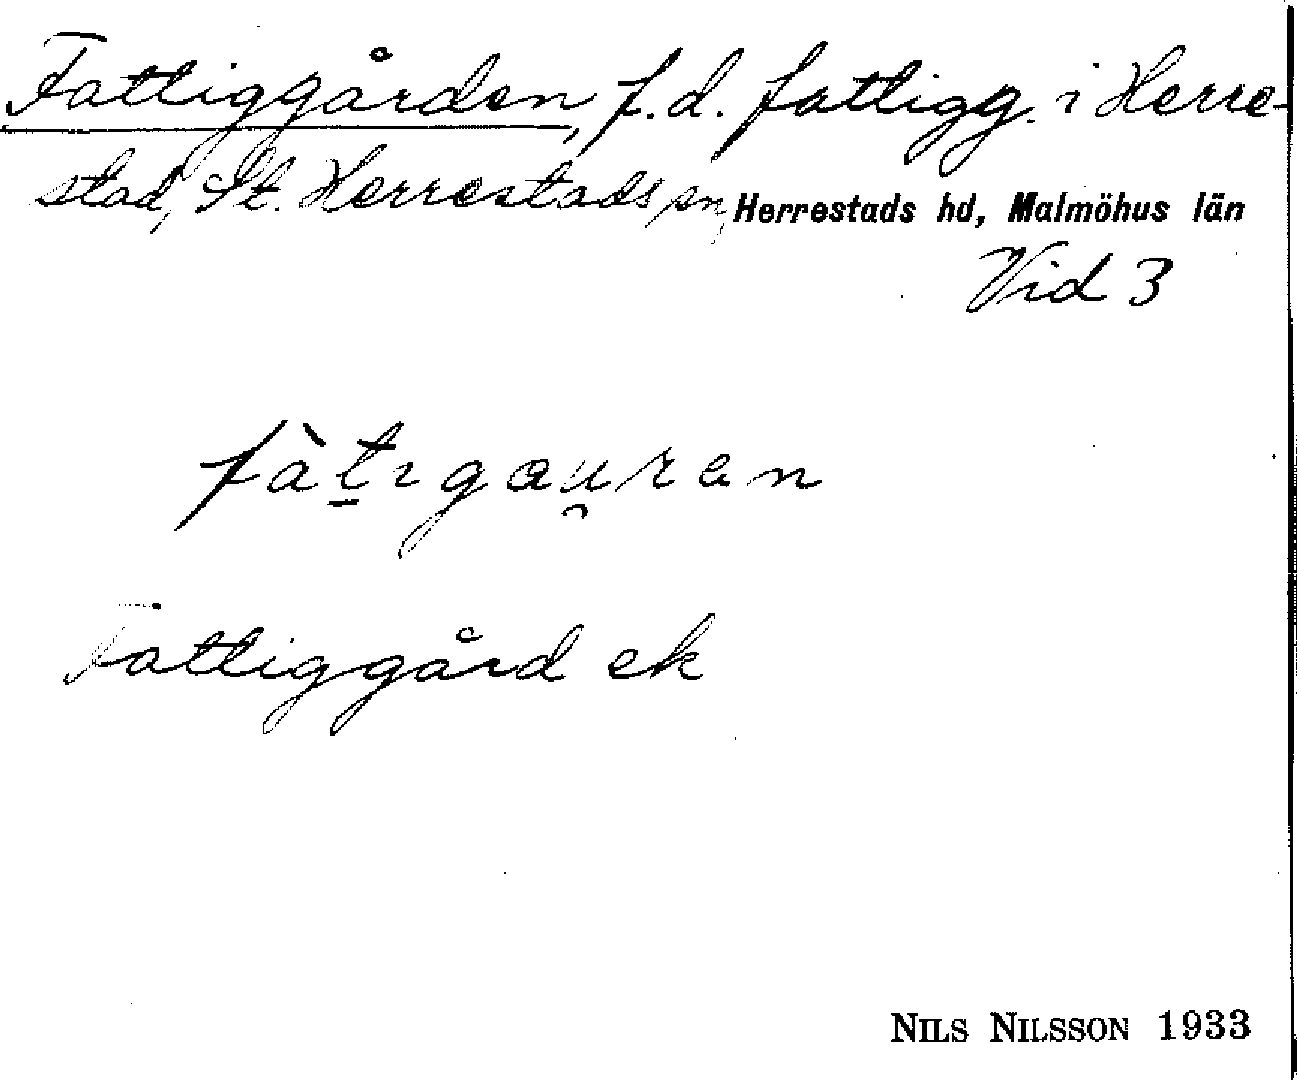 Fattiggården, f.d. fattigg. i Herre-
stad, St. Herrestads sn, Herrestads hd, Malmöhus län
Vid 3
fàt̠ıgau̯ren
Fattiggård ek
NILS NILSSON 1933